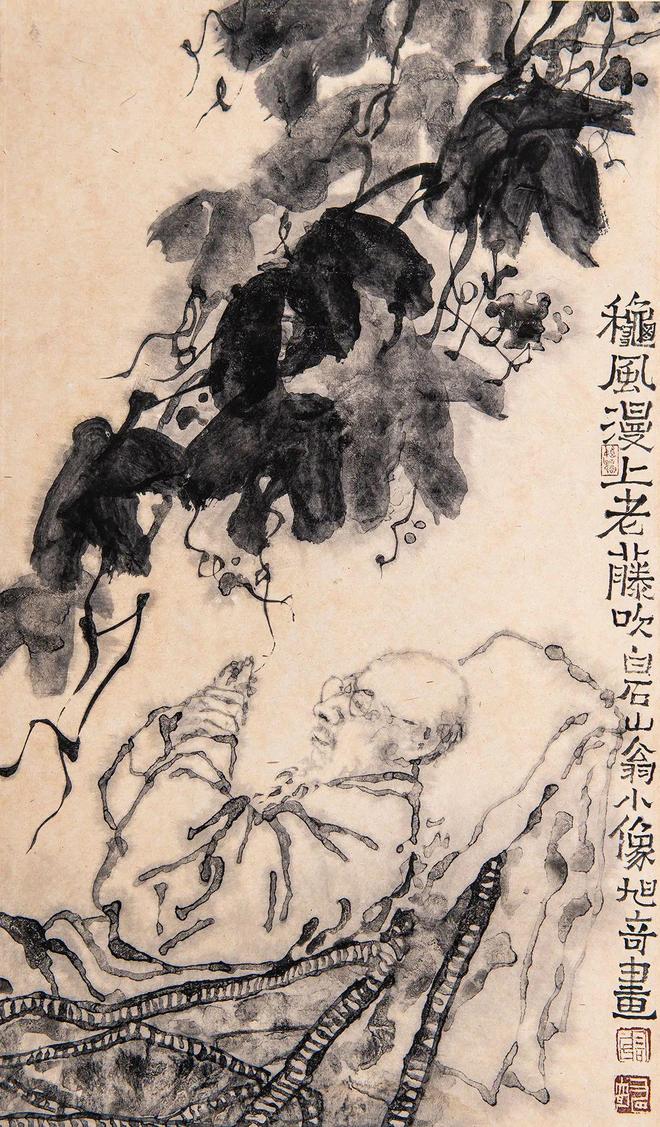 龝風漫上老藤吹白石山翁小像旭奇畫